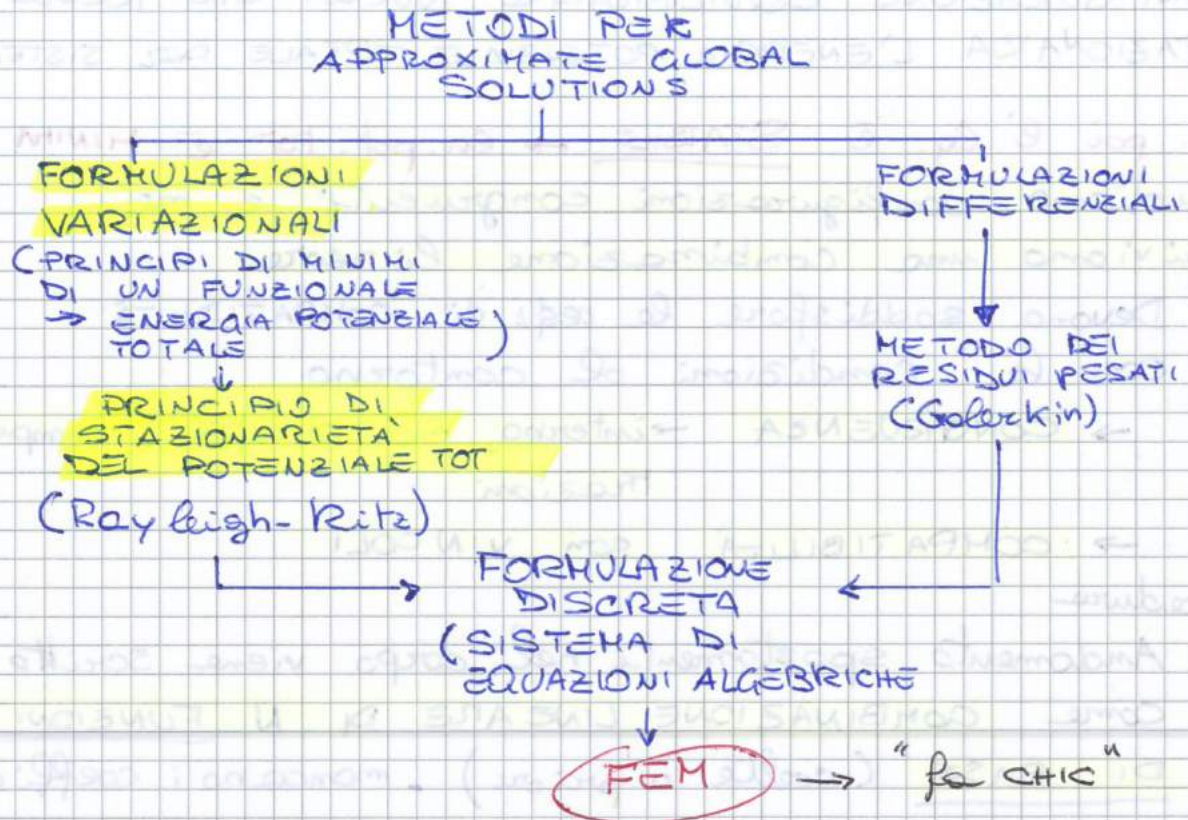 METODI PER
APPROXIMATE GLOBAL
SOLUTIONS
FORMULAZIONI
VARIAZIONALI
(PRINCIPI DI MINIMI
DI UN FUNZIONALE
→ ENERGIA POTENZIALE
TOTALE)
↓
PRINCIPIO DI
STAZIONARIETÀ
DEL POTENZIALE TOT
(Rayleigh-Ritz)
FORMULAZIONI
DIFFERENZIALI
METODO DEI
RESIDUI PESATI
(Galerkin)
FORMULAZIONE
DISCRETA
(SISTEMA DI
EQUAZIONI ALGEBRICHE
↓
FEM → "fa CHIC"